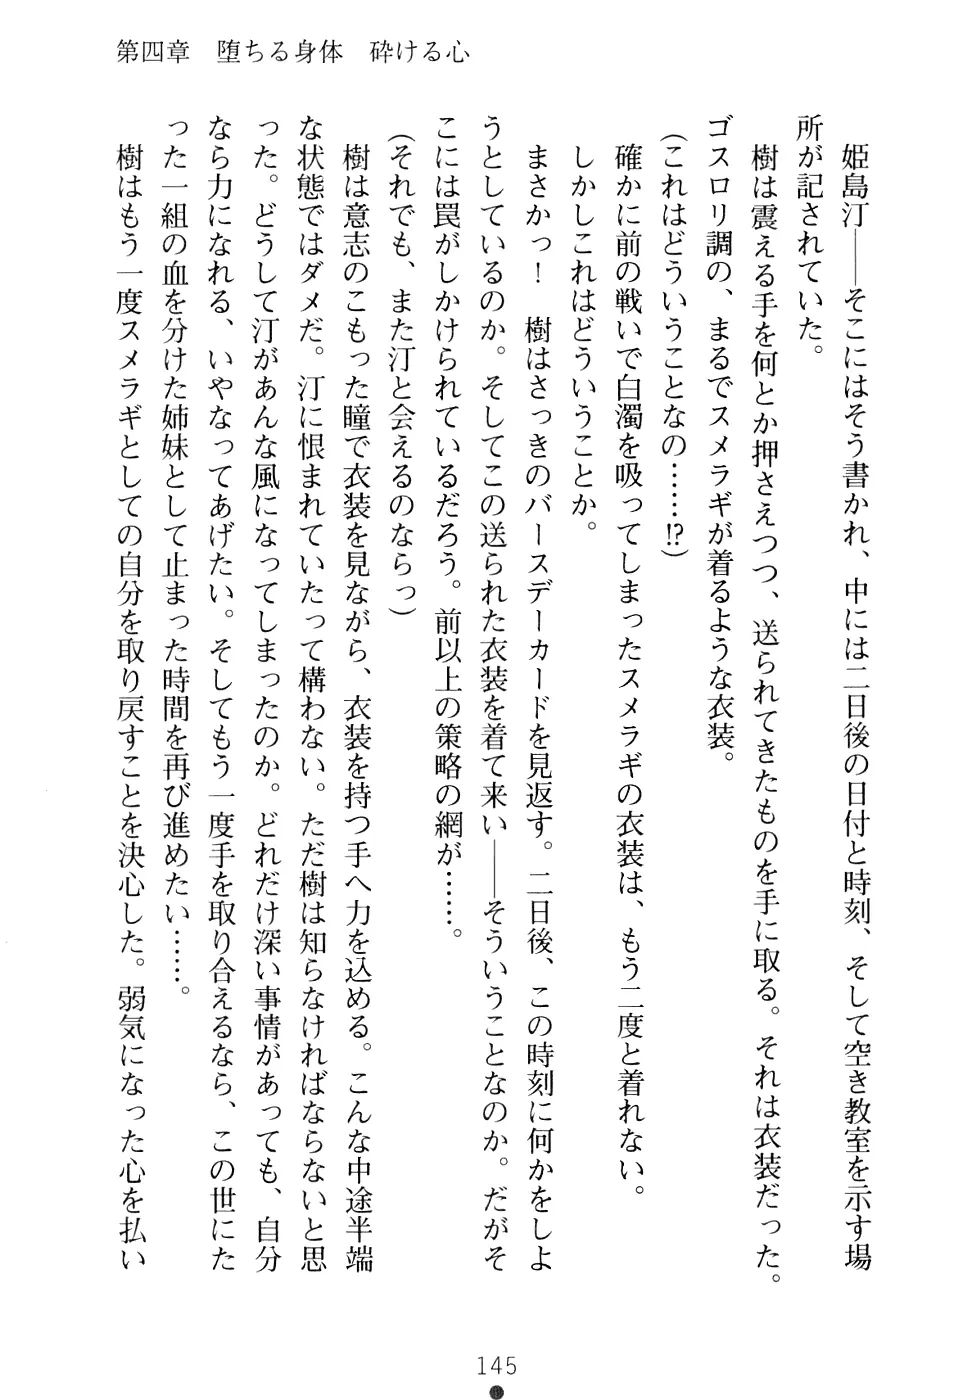 第四章　堕ちる身体　砕ける心
　姫島汀――そこにはそう書かれ、中には二日後の日付と時刻、そして空き教室を示す場
所が記されていた。
　樹は震える手を何とか押さえつつ、送られてきたものを手に取る。それは衣装だった。
ゴスロリ調の、まるでスメラギが着るような衣装。
（これはどういうことなの……!?）
　確かに前の戦いで白濁を吸ってしまったスメラギの衣装は、もう二度と着れない。
　しかしこれはどういうことか。
　まさかっ！　樹はさっきのバースデーカードを見返す。二日後、この時刻に何かをしよ
うとしているのか。そしてこの送られた衣装を着て来い――そういうことなのか。だがそ
こには罠がしかけられているだろう。前以上の策略の網が……。
（それでも、また汀と会えるのならっ）
　樹は意志のこもった瞳で衣装を見ながら、衣装を持つ手へ力を込める。こんな中途半端
な状態ではダメだ。汀に恨まれていたって構わない。ただ樹は知らなければならないと思
った。どうして汀があんな風になってしまったのか。どれだけ深い事情があっても、自分
なら力になれる、いやなってあげたい。そしてもう一度手を取り合えるなら、この世にた
った一組の血を分けた姉妹として止まった時間を再び進めたい……。
　樹はもう一度スメラギとしての自分を取り戻すことを決心した。弱気になった心を払い
145